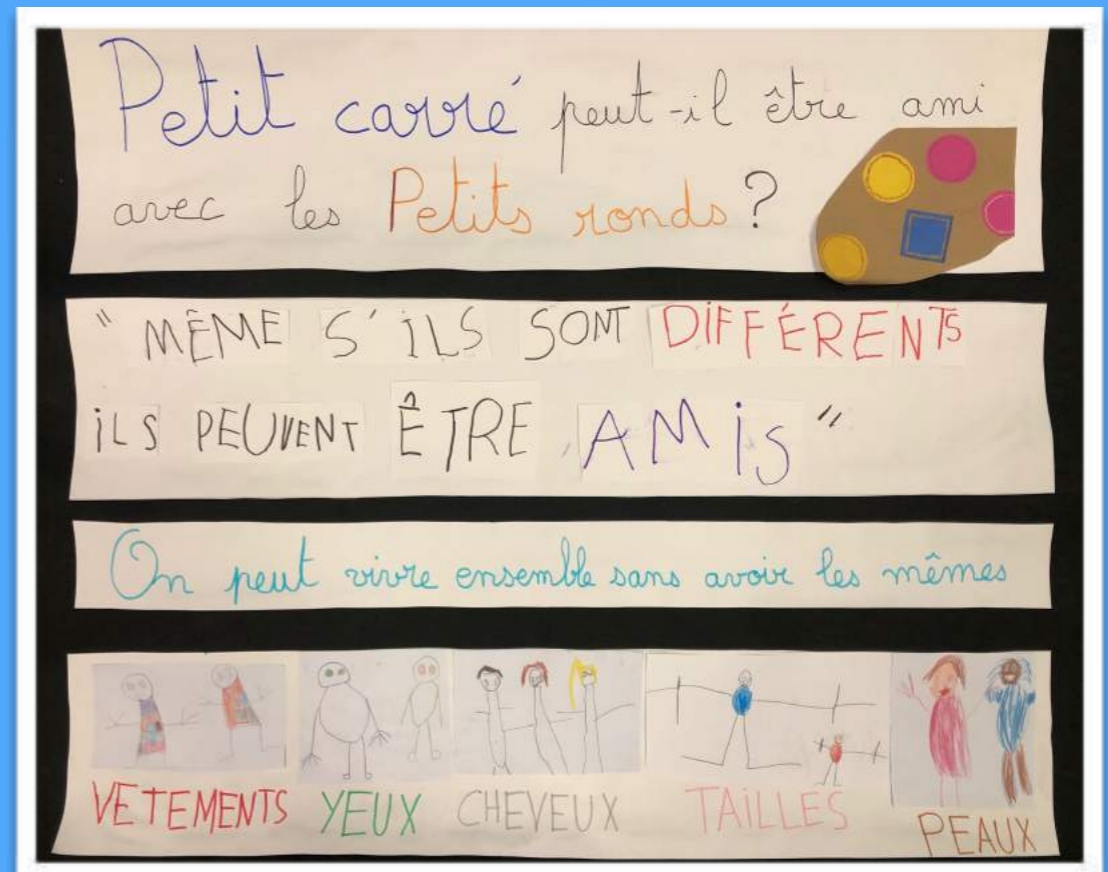 Petit carré peut-il être ami
avec les Petits ronds ?
" MÊME S'ILS SONT DIFFÉRENTS
ILS PEUVENT ÊTRE AMIS "
On peut vivre ensemble sans avoir les mêmes
VETEMENTS YEUX CHEVEUX TAILLES PEAUX